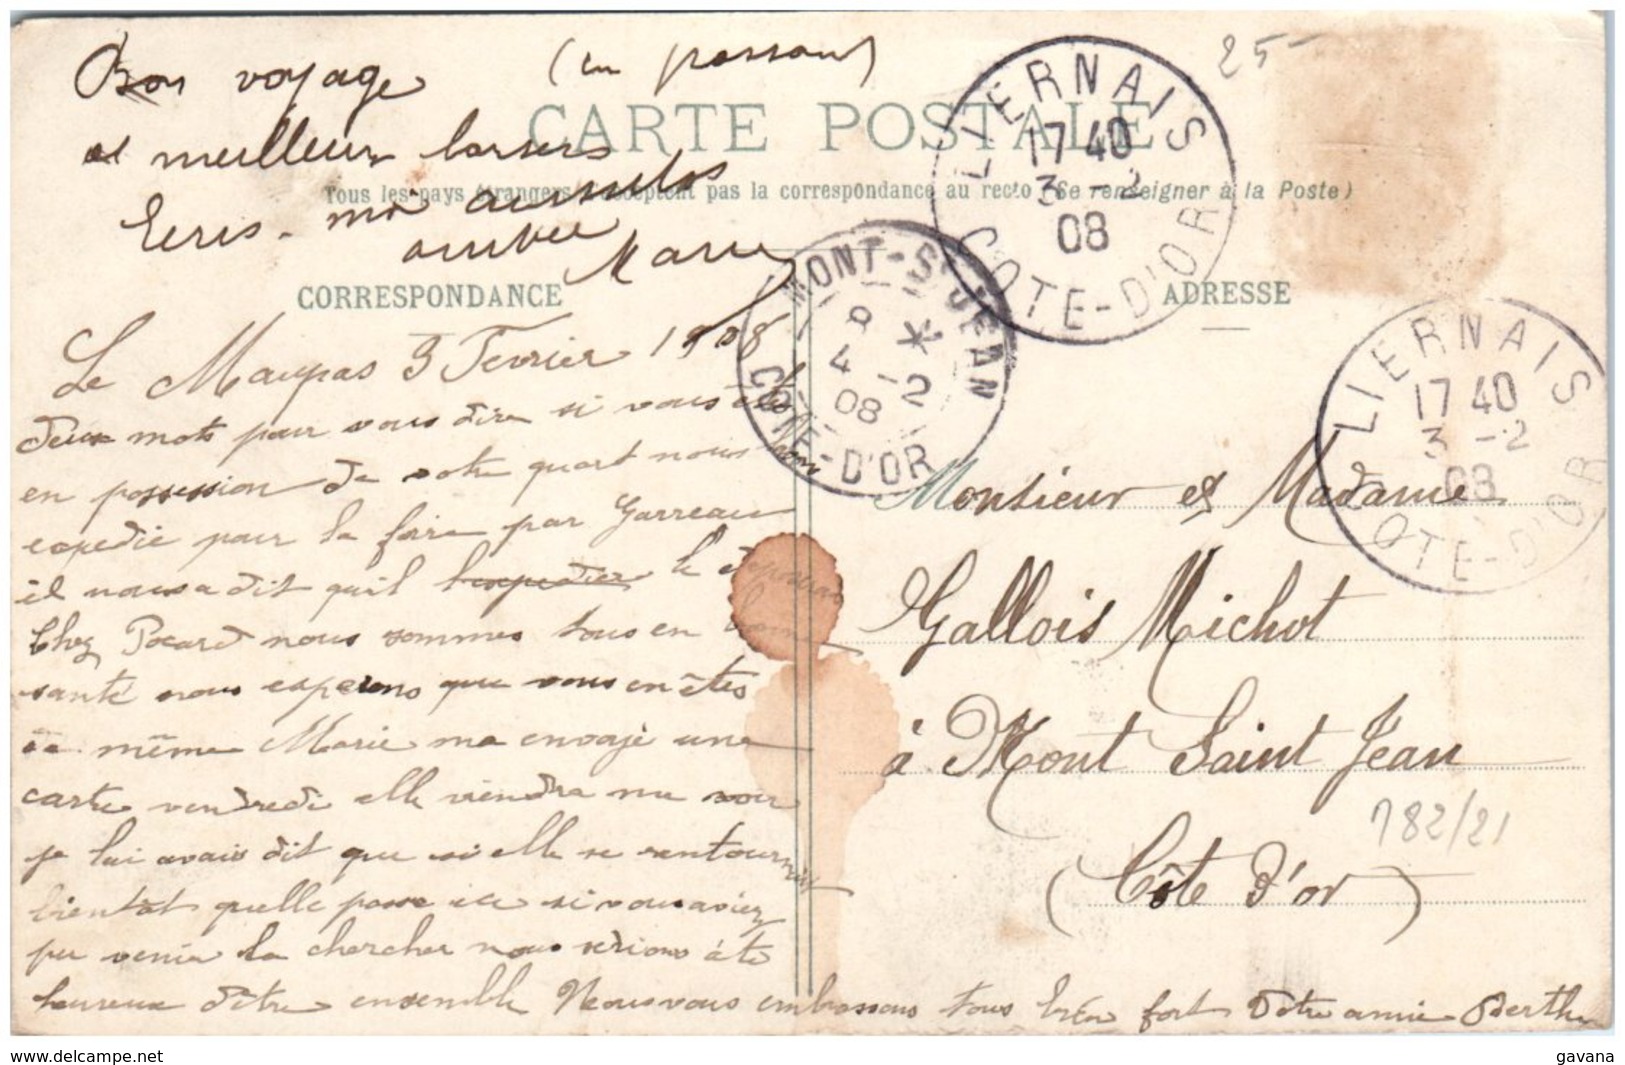 Bon voyage (en passant)
et meilleurs baisers
Ecris-moi aussitôt
arrivée Marie
25-
CARTE POSTALE
Tous les pays étrangers n'acceptent pas la correspondance au recto (Se renseigner à la Poste)
CORRESPONDANCE
ADRESSE
LIERNAIS
17 40
3 -2
08
COTE-D'OR
MONT-ST-JEAN
8 *
4 -2
08
COTE-D'OR
LIERNAIS
17 40
3 -2
08
COTE-D'OR
Le Maupas 3 Fevrier 1908
deux mots pour vous dire si vous êtes
en possession de votre quart nous l'avons
expedié pour la foire par Garreau
il nous a dit quil l'expedier le déposerai
Chez Pocard nous sommes tous en bonne
santé nous experons que vous en êtes
de même Marie ma envoyé une
carte vendredi elle viendra me voir
je lui avais dit que si elle se rentournait
bientôt quelle passe ici si vous aviez
pu venir la chercher nous serions été
heureux dêtre ensemble Nous vous embrassons tous bien fort Votre amie Berthe
Monsieur et Madame
Gallois Michot
à Mont Saint Jean
782/21
(Côte d'or)
www.delcampe.net
gavana